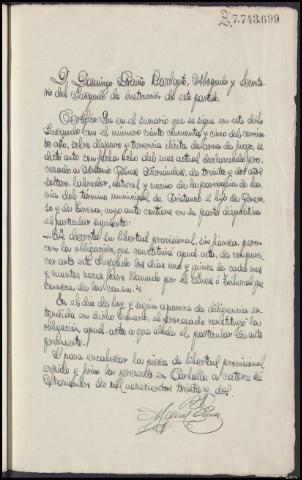 Z.7.743.699
D. Domingo Abogado y Secreta-
rio del Juzgado de instrucción de este partido.
Certifico: Que en el sumario que se sigue en este dicho
Juzgado con el número ciento cincuenta y cinco del corrien-
te año, sobre disparo y tenencia ilícita de arma de fuego, se
dictó auto con fecha ocho del mes actual declarando pro-
cesado a Antonio Fernández, de treinta y dos años,
soltero, labrador, natural y vecino de la parroquia de
del término municipal de Cristanco e hijo de Genero-
so y de Teresa, cuyo auto contiene en su parte dispositiva
el particular siguiente:
Se decreta su libertad provisional, sin fianza, pero
con la obligación, que constituirá apud acta, de compare-
cer ante este Juzgado los días uno y quince de cada mes
y cuantas veces fuere llamado por el Juez o Tribunal que
conozca de la causa.»
En el día de hoy y según aparece de diligencia ex-
tendida en dicho sumario, el procesado constituyó la
obligación apud acta a que alude el particular de auto
preinserto.
Y para encabezar la pieza de libertad provisional
expido y firmo la presente en Carballo a catorce de
Noviembre de mil novecientos treinta y dos.